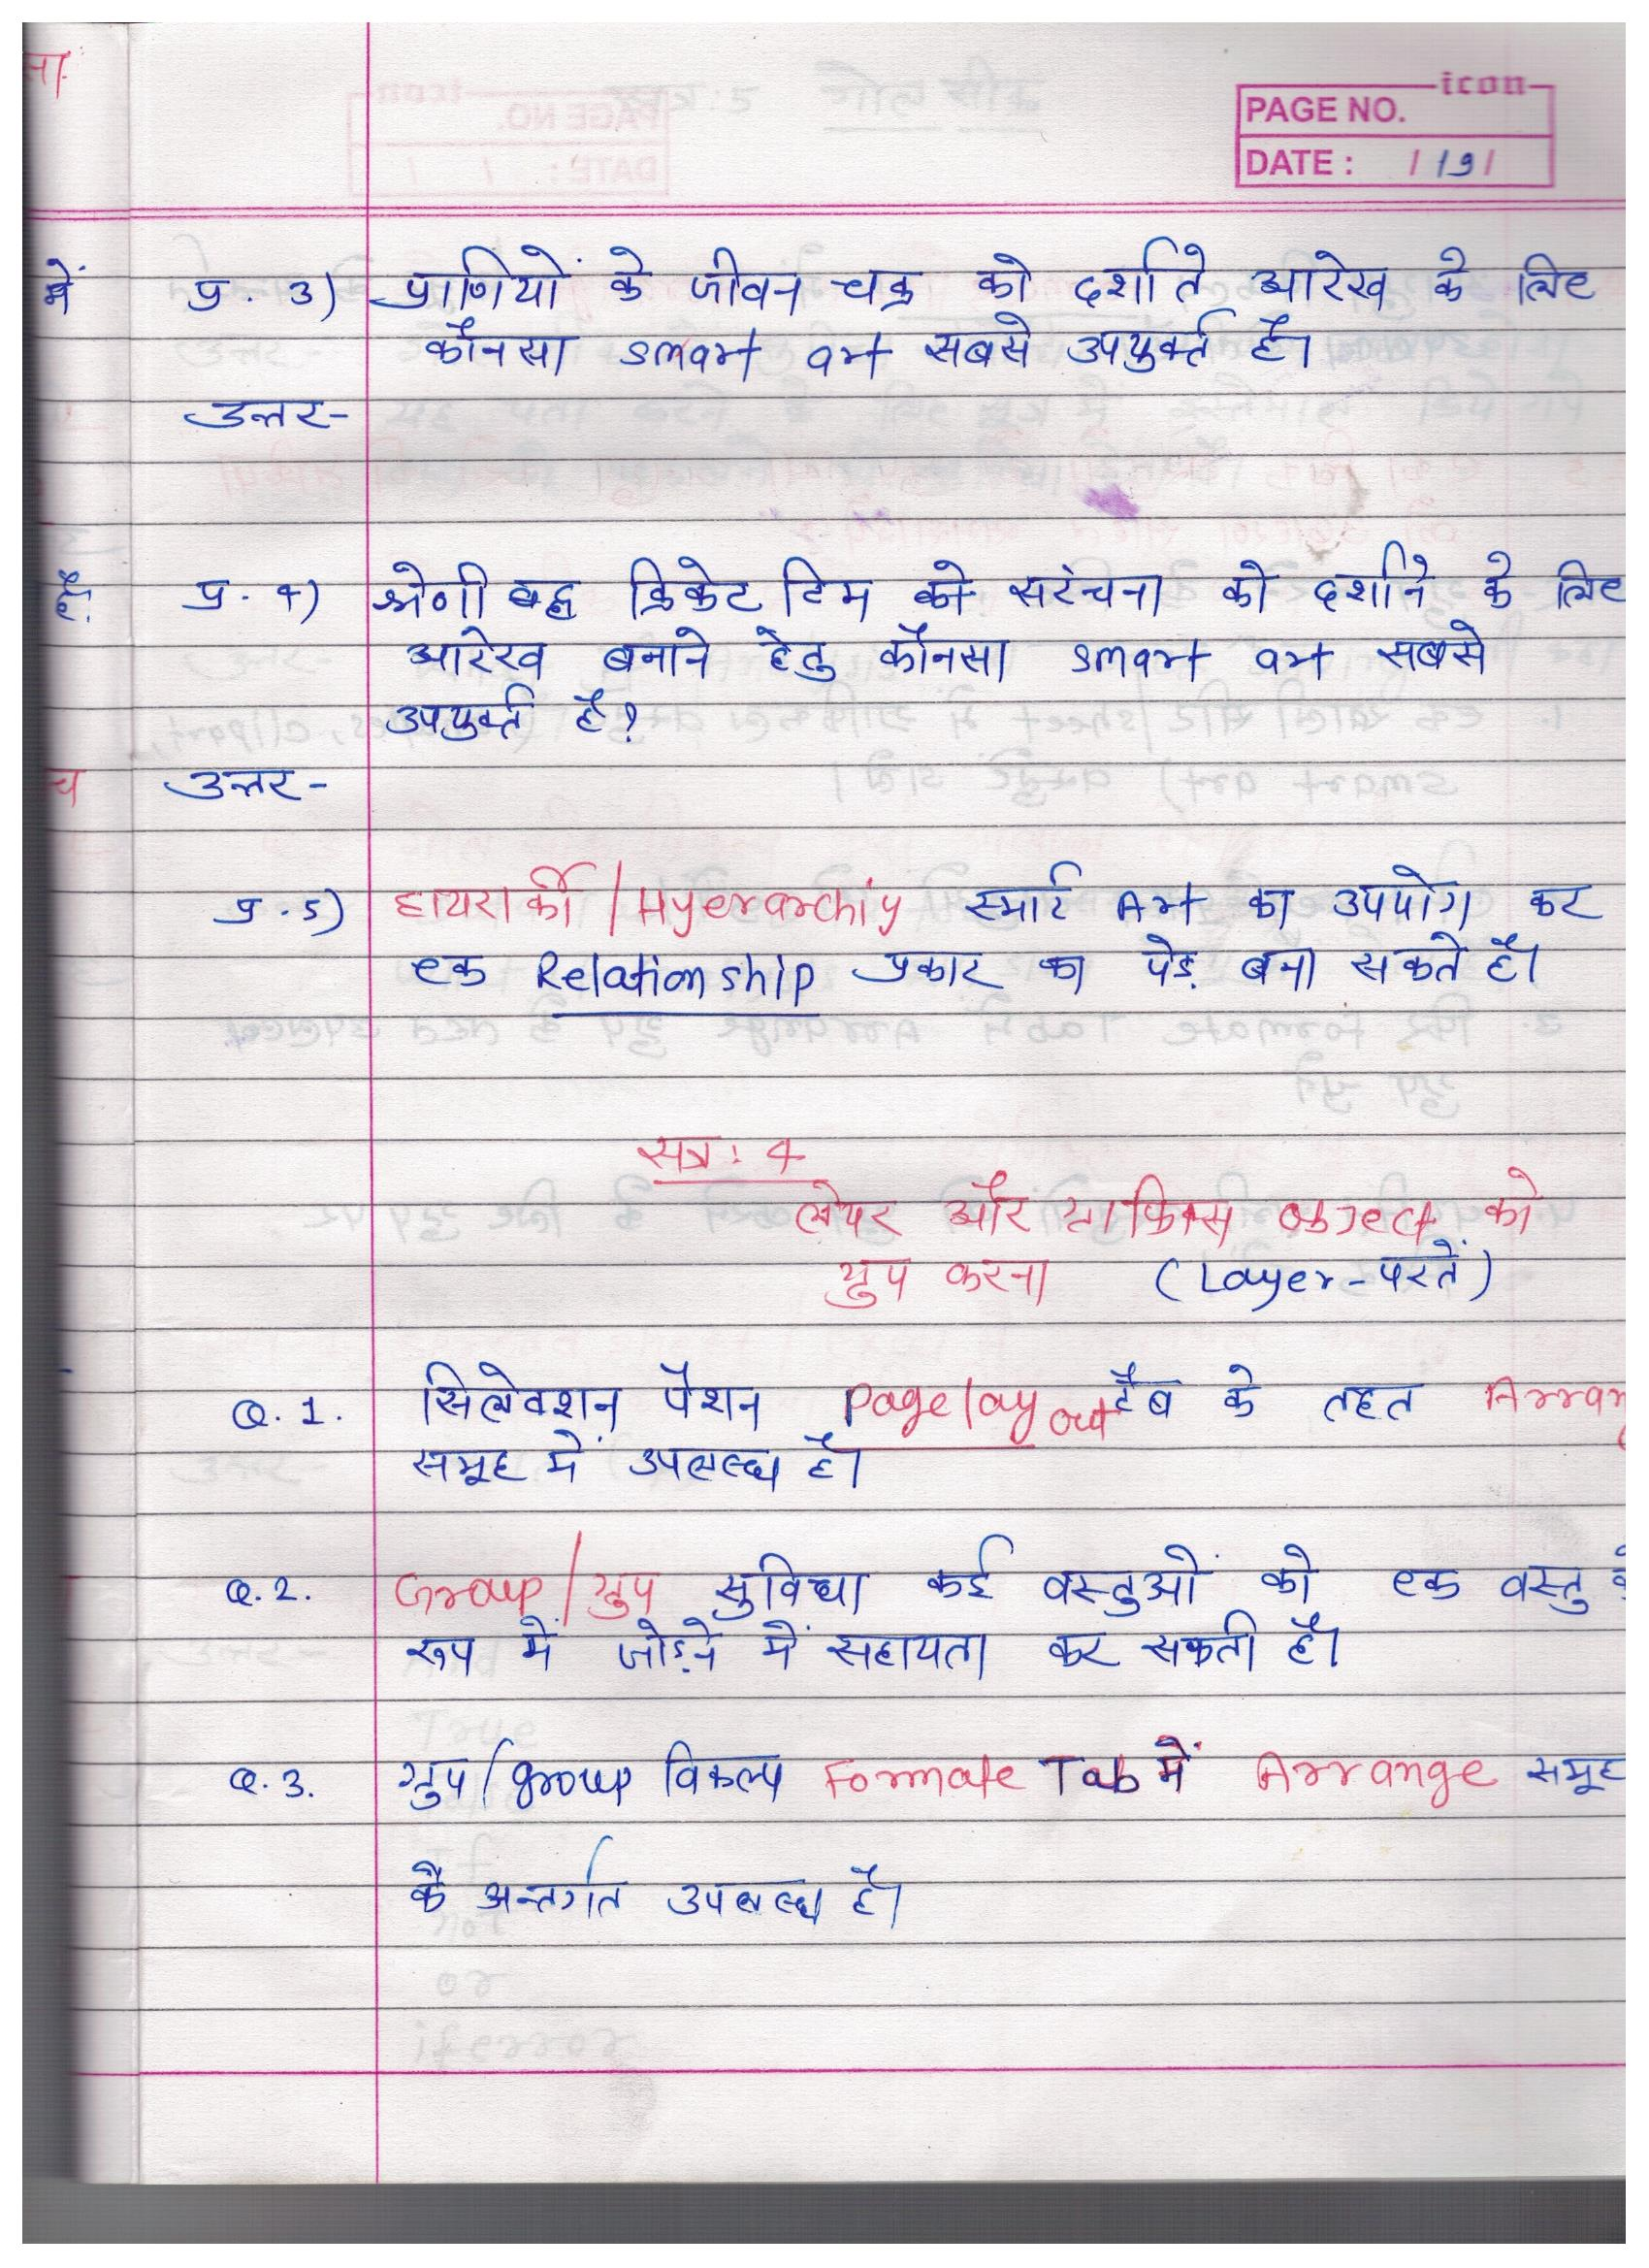 icon
PAGE NO.
DATE : / 19 /
प्र. 3) प्राणियों के जीवन चक्र को दर्शाते आरेख के लिए
कौनसा smart art सबसे उपयुर्क्त है।
उत्तर-
प्र. 4) श्रेणी बद्ध क्रिकेट टिम की सरंचना को दर्शाने के लिए
आरेख बनाने हेतु कौनसा smart art सबसे
उपयुर्क्त है?
उत्तर-
प्र. 5) हायरार्की / Hyerarchiy स्मार्ट Art का उपयोग कर
एक Relationship प्रकार का पेड़ बना सकते है।
सत्र: 4
लेयर और ग्राफिक्स object को
ग्रुप करना (Layer-परतें)
Q. 1. सिलेक्शन पैशन Page layout टैब के तहत Arran
समूह में उपलब्ध है।
Q. 2. Group/ग्रुप सुविधा कई वस्तुओं को एक वस्तु के
रूप में जोड़ने में सहायता कर सकती है।
Q. 3. ग्रुप/group विकल्प Formate Tab में Arrange समूह
के अन्तर्गत उपलब्ध है।